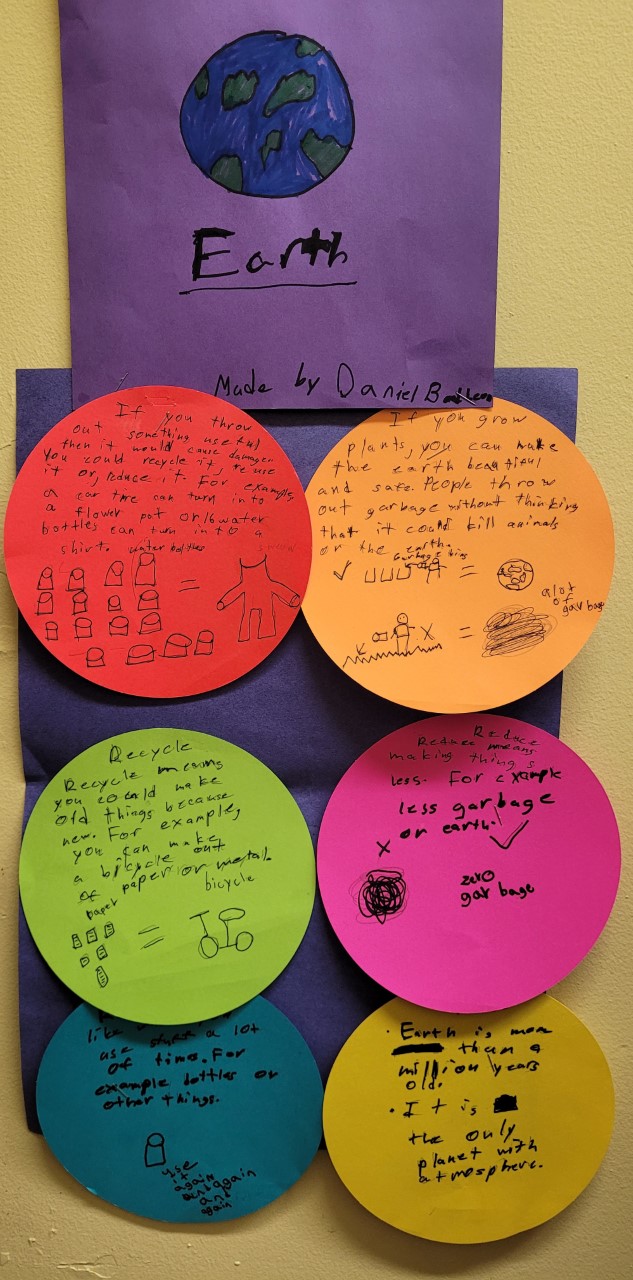 Earth
Made by Daniel
If you throw
out something useful
then it would cause damage.
You could recycle it, reuse
it or, reduce it. For example,
a car tire can turn into
a flower pot or 16 water
bottles can turn into a
shirt.
water bottles
=
If you grow
plants, you can make
the earth beautiful
and safe. People throw
out garbage without thinking
that it could kill animals
or the earth.
garbage bins
=
a lot
of
garbage
X =
Recycle
Recycle means
you could make
old things because
new. For example,
you can make
a bicycle out
of paper or metal.
paper
bicycle
=
Reduce
Reduce means
making things
less. For example
less garbage
or earth.
X
zero
garbage
like
use a lot
of times. For
example bottles or
other things.
use
it
again
and again
and
again
· Earth is more
than a
million years
old.
· It is
the only
planet with
atmosphere.